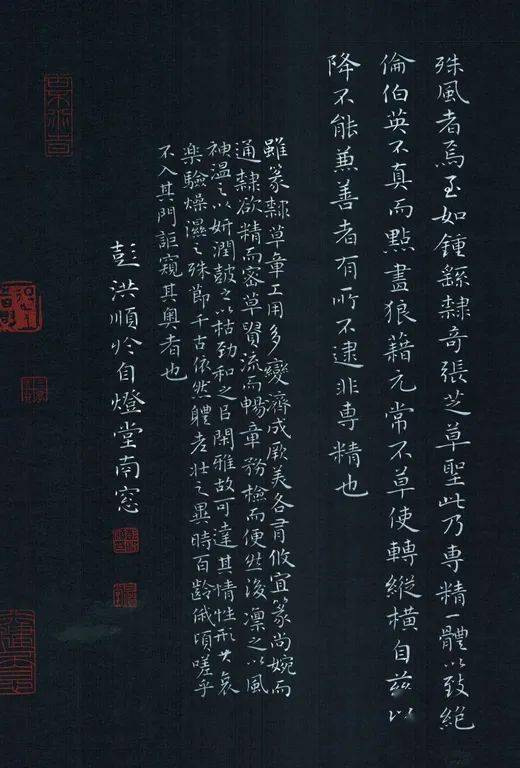 殊風者焉至如鍾繇隸奇張芝草聖此乃専精一體以致絕
倫伯英不真而點畫狼藉元常不草使轉縱橫自茲以
降不能兼善者有所不逮非専精也
雖篆隸草章工用多變濟成厥美各有攸宜篆尚婉而
通隸欲精而密草貴流而暢章務檢而便然後凜之以風
神溫之以妍潤鼓之以枯勁和之以閑雅故可達其情性形其哀
楽驗燥濕之殊節千古依然體老壯之異時百齡俄頃嗟乎
不入其門詎窺其奧者也
彭洪順於自燈堂南窓